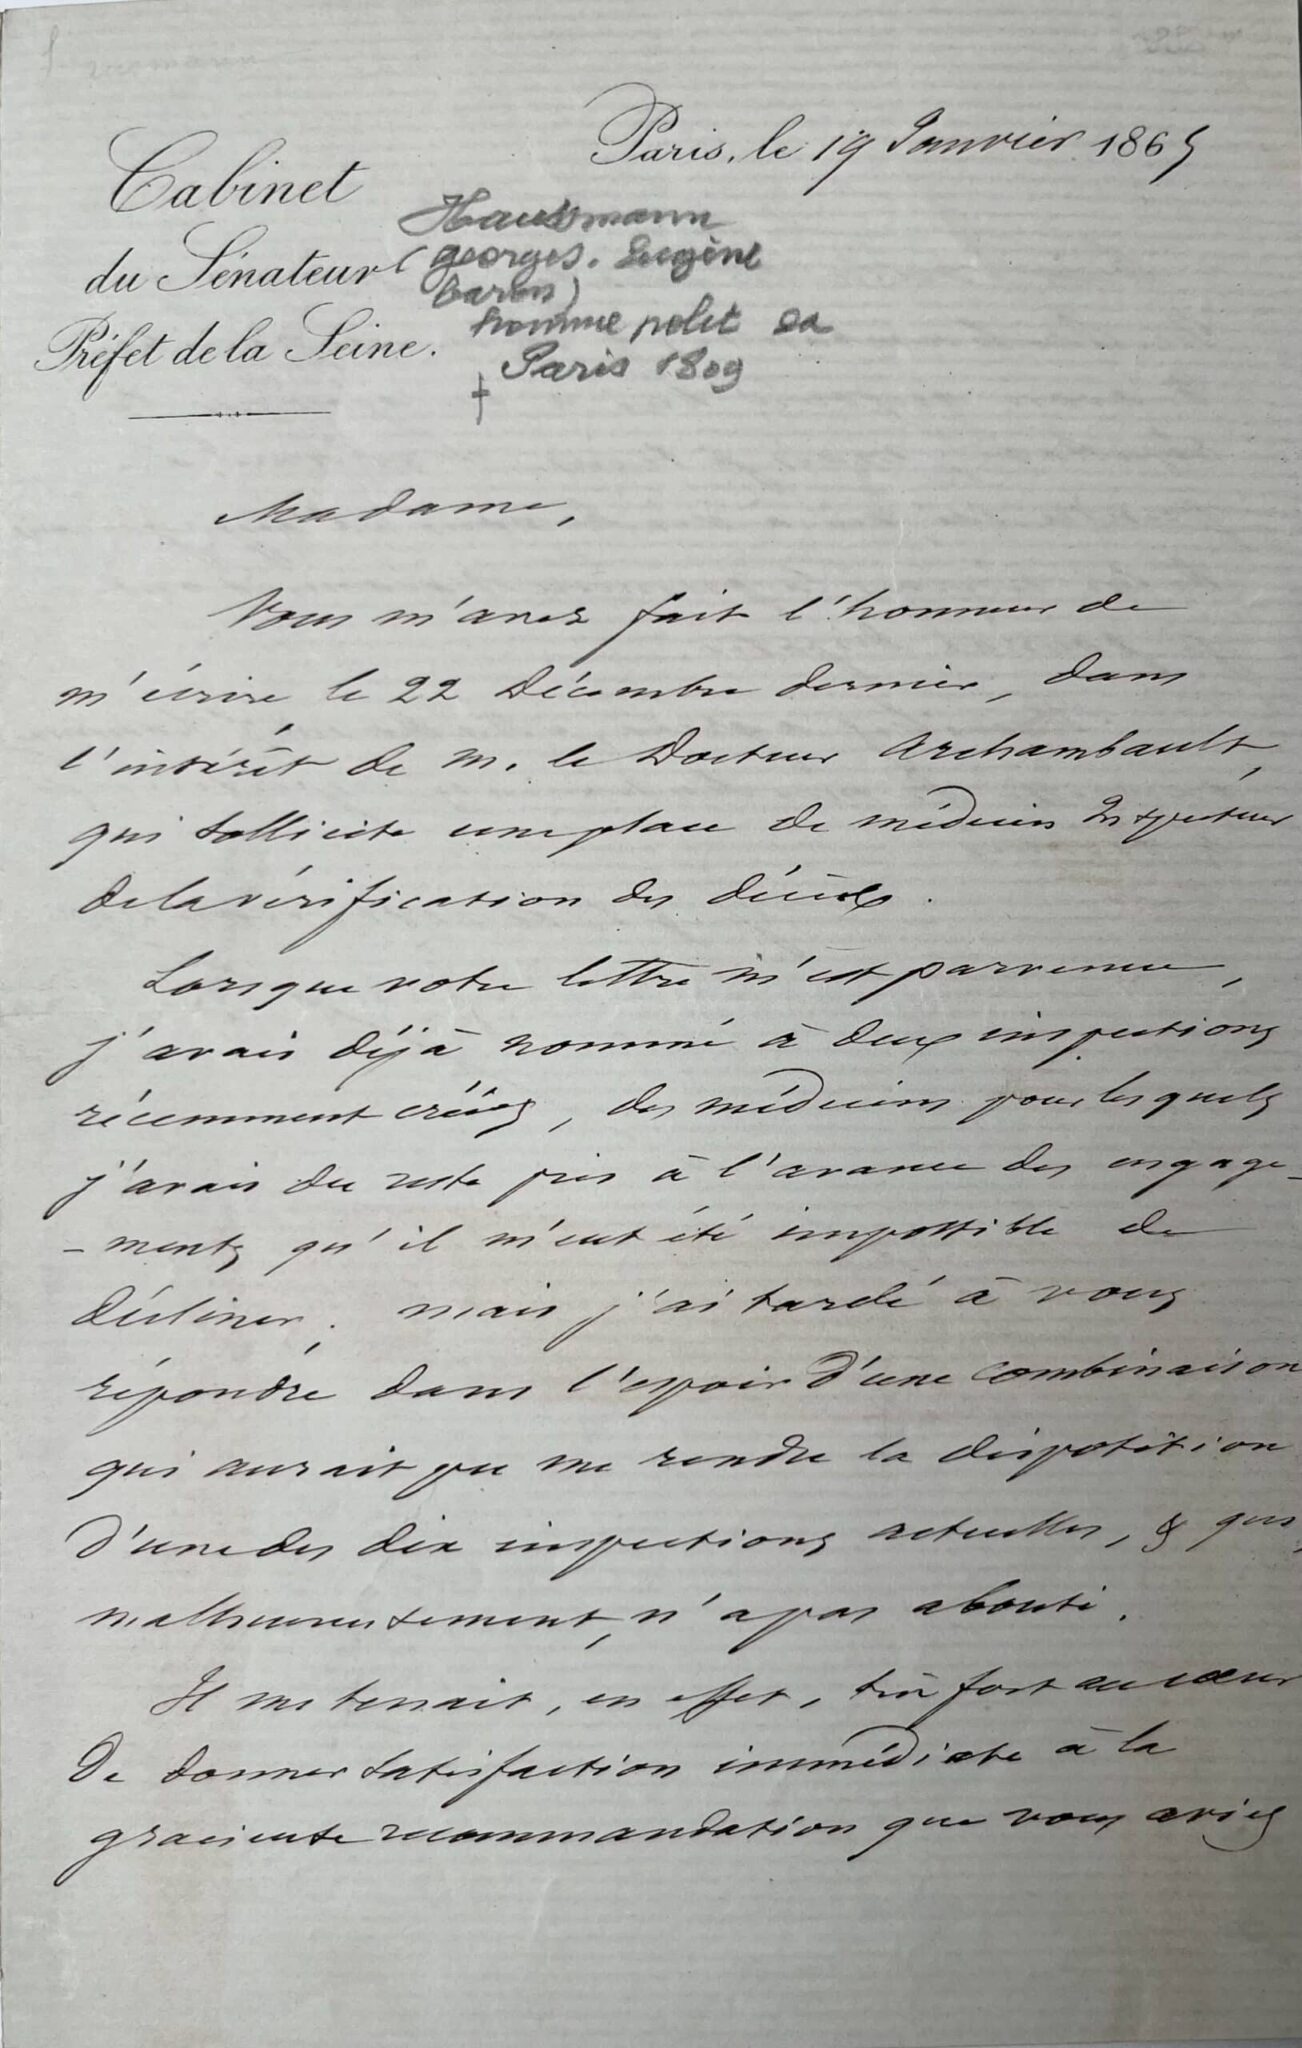 Paris, le 19 Janvier 1865
Cabinet
du Sénateur
Préfet de la Seine.
Haussmann
(Georges. Eugène
baron)
homme polit
Paris 1809
†
Madame,
Vous m'avez fait l'honneur de
m'écrire le 22 Décembre dernier, dans
l'intérêt de M. le Docteur Archambault,
qui sollicite une place de médecin Inspecteur
de la vérification des décès.
Lorsque votre lettre m'est parvenue,
j'avais déjà nommé à deux inspections
récemment créées, des médecins pour lesquels
j'avais du reste pris à l'avance des engage-
-ments qu'il m'eut été impossible de
décliner; mais j'ai tardé à vous
répondre dans l'espoir d'une combinaison
qui aurait pu me rendre la disposition
d'une des dix inspections actuelles, & qui,
malheureusement, n'a pas abouti.
Il me tenait, en effet, très fort au cœur
de donner satisfaction immédiate à la
gracieuse recommandation que vous aviez